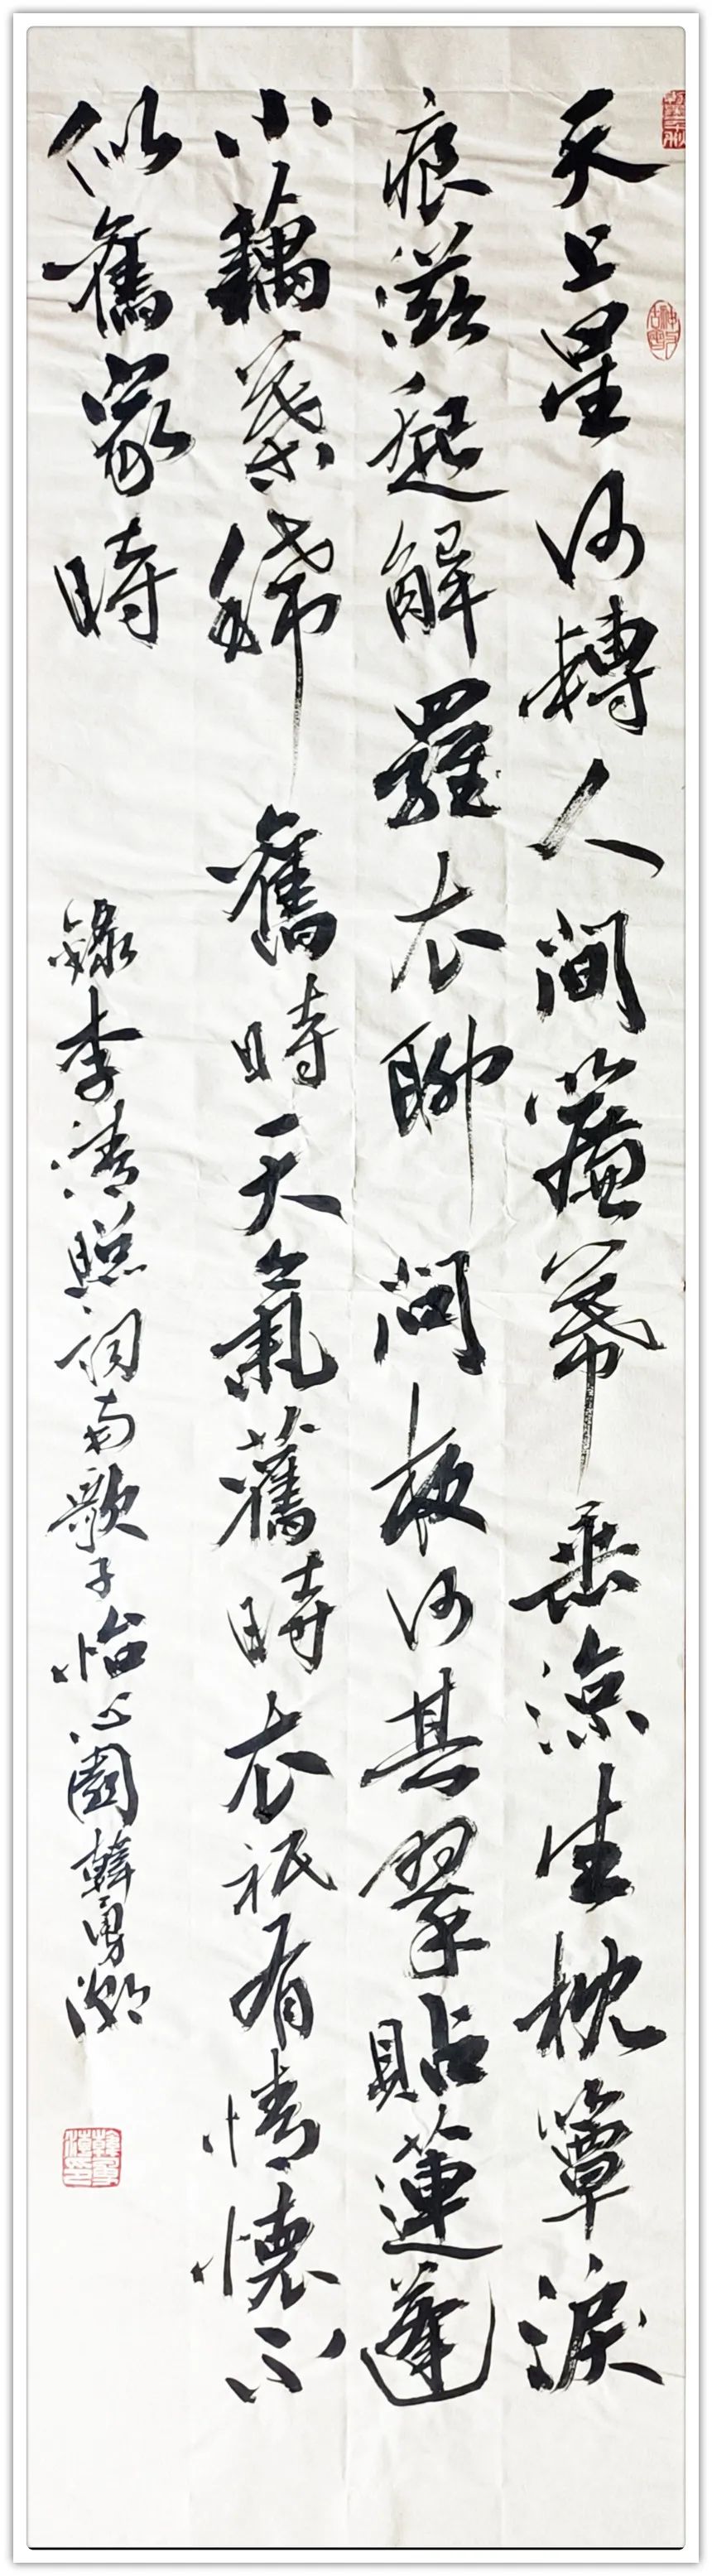 天上星河轉人間簾幕垂涼生枕簟淚
痕滋起解羅衣聊問夜何其翠貼蓮蓬
小藕葉稀舊時天氣舊時衣祇有情懷不
似舊家時
錄李清照詞南歌子怡心園韓勇